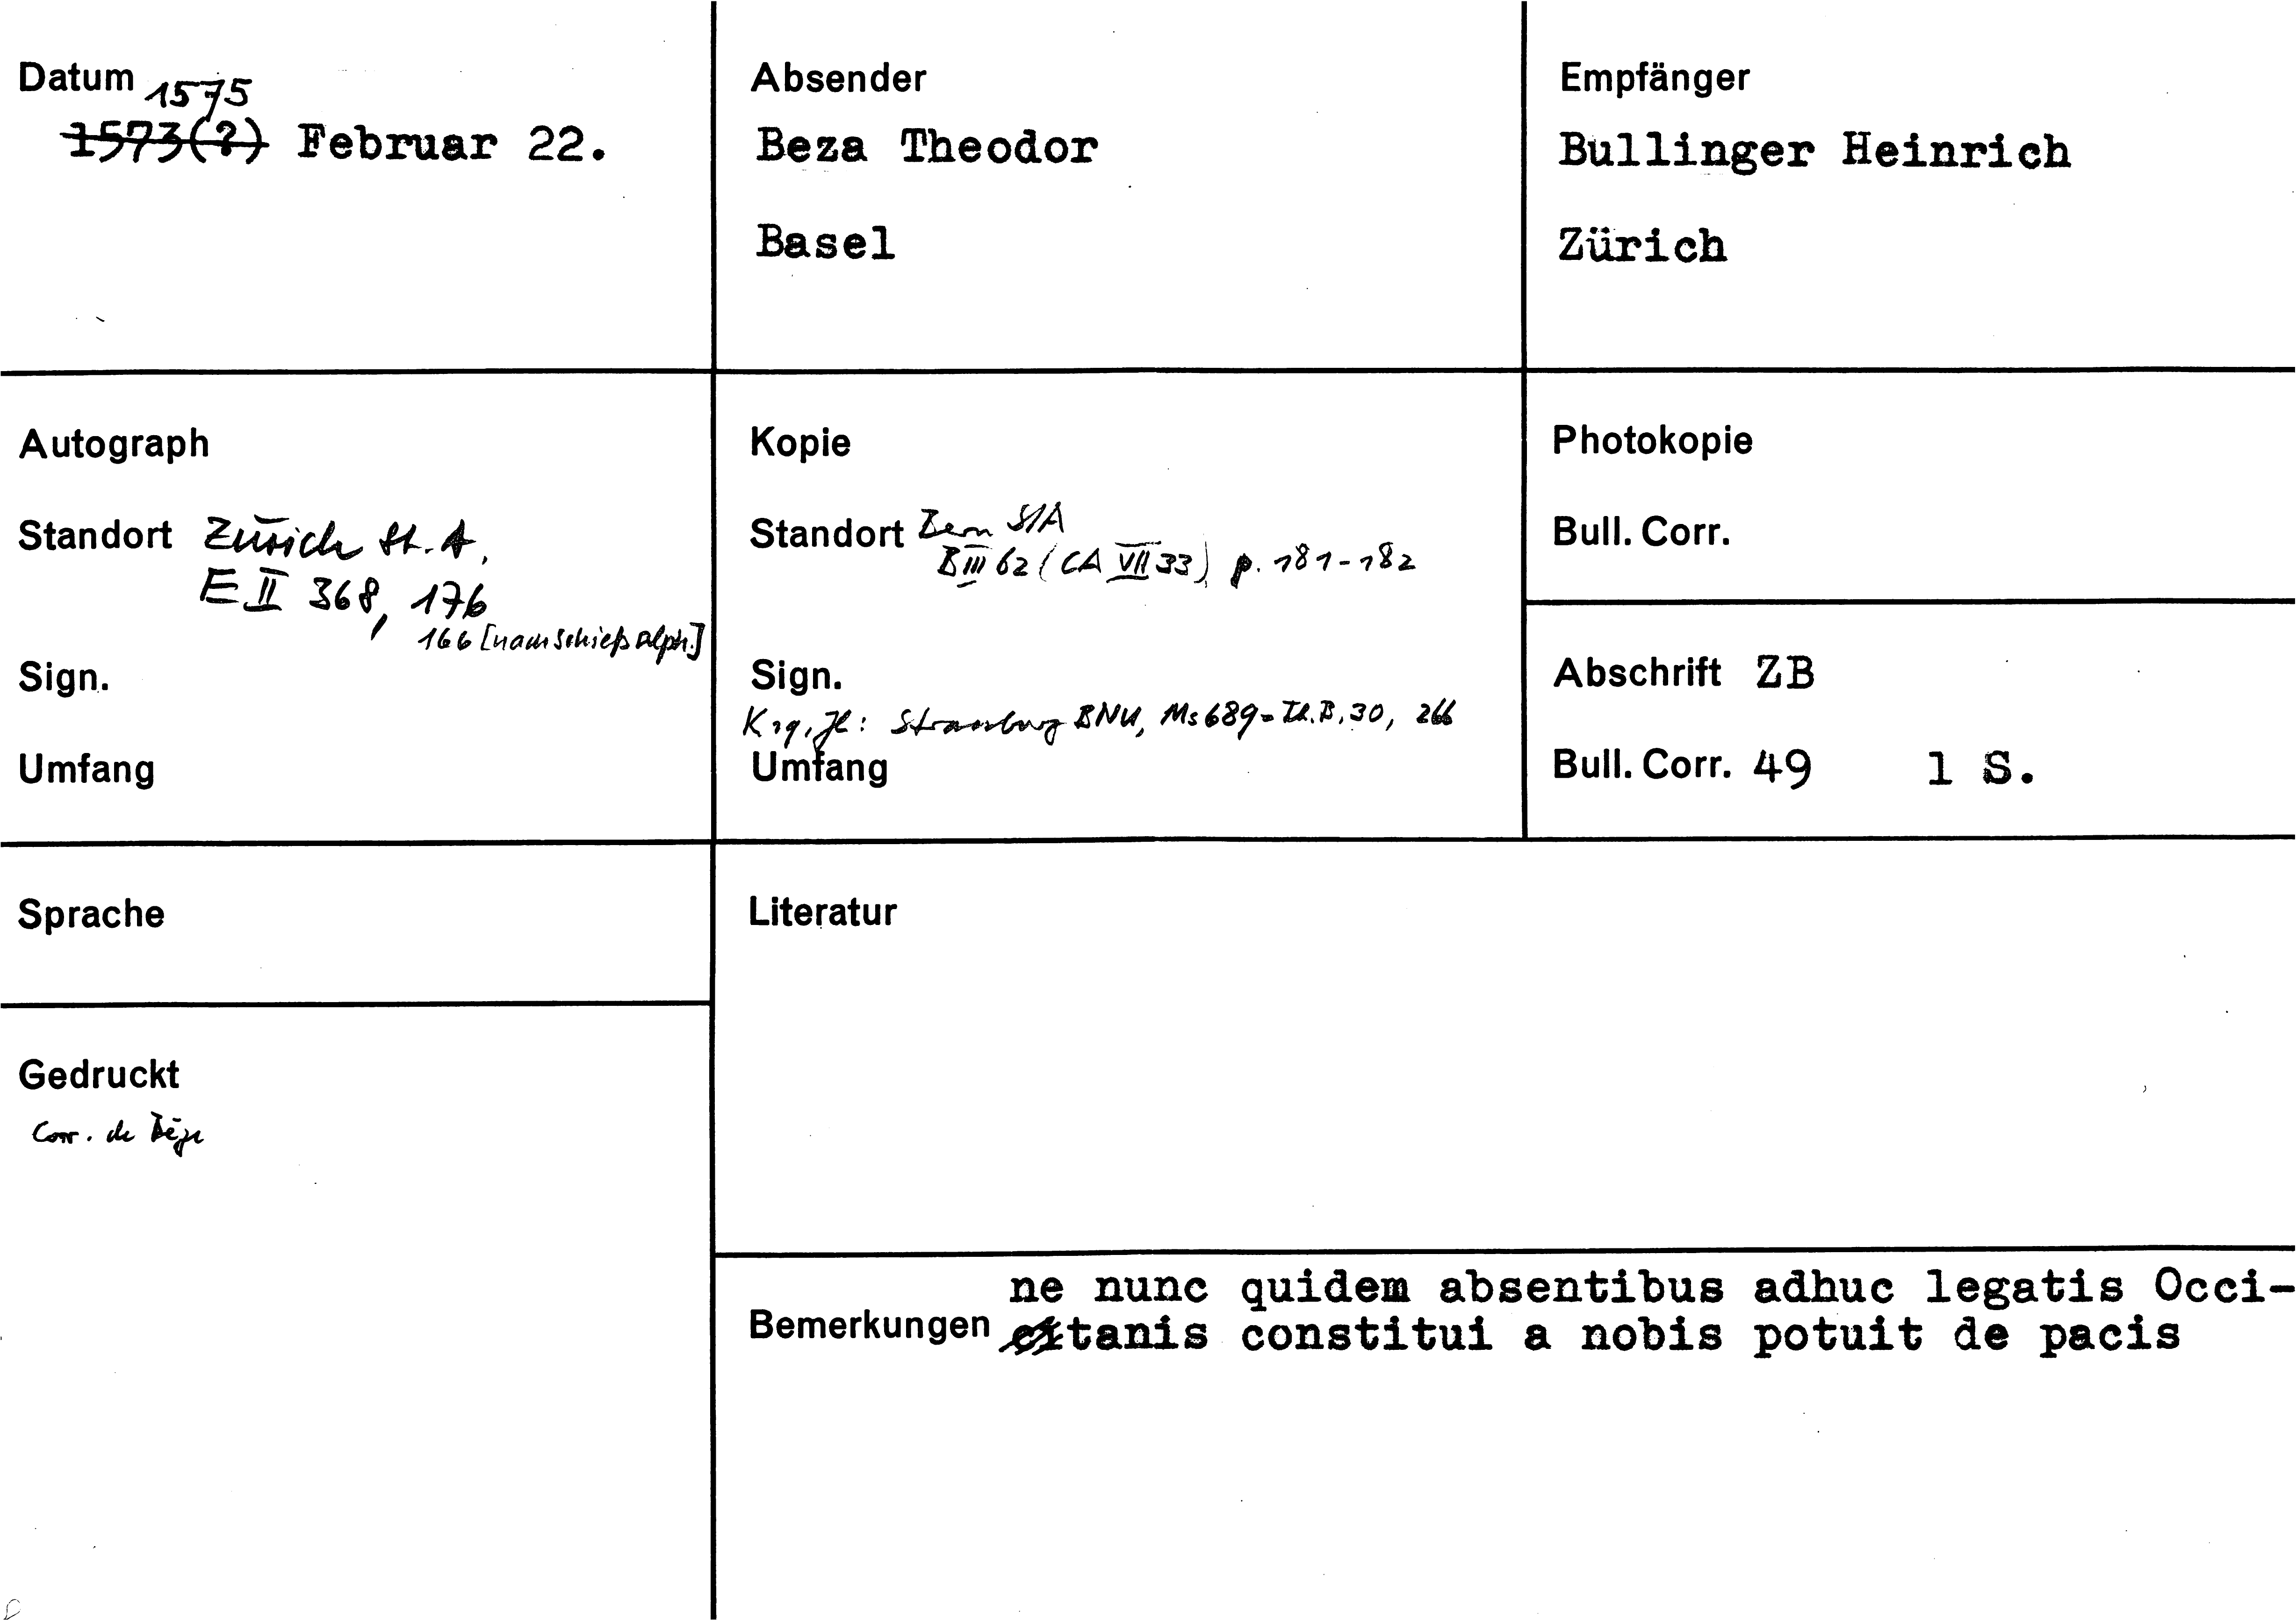 Datum 1575
1573(?) Februar 22.
Absender
Beza Theodor
Basel
Empfänger
Bullinger Heinrich
Zürich
Autograph
Standort Zürich St. A,
E II 368, 176
166 [nach Schieß alph.]
Sign.
Umfang
Kopie
Standort Bern StA
B III 62 (CA VII 33) p. 181-182
Sign.
Strassburg BNU, Ms 689 = Th.B. 30, 266
Umfang
Photokopie
Bull. Corr.
Abschrift ZB
Bull. Corr. 49 1 S.
Sprache
Gedruckt
Corr. de Bèze
Literatur
Bemerkungen
ne nunc quidem absentibus adhuc legatis Occi-
tanis constitui a nobis potuit de pacis